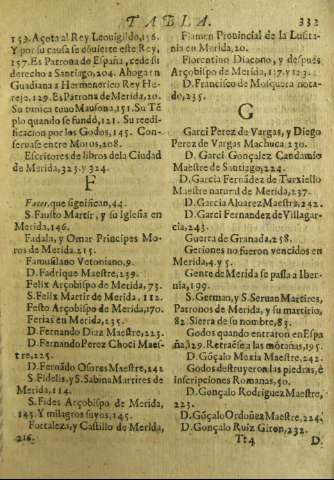 TABLA.
332
153. Açota al Rey Leouigildo, 156.
Y por su causa se cõuierte este Rey,
157. Es Patrona de España, cede su
derecho a Santiago, 204. Ahogarõ
Guadiana a Hermenerico Rey He-
reje, 129. Es Patrona de Merida, 20.
Su tunica tuuo Mausona, 151. Su Tẽ
plo quando se fundò, 121. Su reedi-
ficacion por los Godos, 145. Con-
seruase entre Moros, 208.
Escritores de libros dela Ciudad
de Merida, 323. y 324.
F
Fates, que significan, 44.
S. Fausto Martir, y su Iglesia en
Merida, 146.
Fadala, y Omar Principes Mo-
ros de Merida. 215.
Famusilano Vetoniano, 9.
D. Fadrique Maestre, 239.
Felix Arçobispo de Merida, 73.
S. Felix Martir de Merida. 112.
Festo Arçobispo de Merida, 170.
Ferias en Merida, 235.
D. Fernando Diaz Maestre, 223.
D. Fernando Perez Choci Maes-
tre, 225.
D. Fernãdo Osores Maestre, 242
S. Fidelis, y S. Sabina Martires de
Merida, 114.
S. Fides Arçobispo de Merida,
143. Y milagros suyos, 145.
Fortaleza, y Castillo de Merida,
216.
Flamen Prouincial de la Lusita-
nia en Merida, 20.
Florentino Diacono, y despues
Arçobispo de Merida, 117. y 123.
D. Francisco de Mosquera nota-
do, 235.
G
Garci Perez de Vargas, y Diego
Perez de Vargas Machuca 230.
D. Garci Gonçalez Candamio
Maestre de Santiago, 224.
D. Garcia Fernãdez de Turziello
Maestre natural de Merida, 237.
D. Garcia Aluarez Maestre, 242.
D. Garci Fernandez de Villagar-
cia, 243.
Guerra de Granada, 258.
Geriones no fueron vencidos en
Merida, 4. y 5.
Gente de Merida se passa a Iber-
nia, 199.
S. German, y S. Seruan Martires,
Patronos de Merida, y su martirio,
82. Sierra de su nombre, 83.
Godos quando entraron en Espa
ña, 129. Retraẽse a las mõtañas, 195.
D. Gõçalo Mexia Maestre, 242.
Godos destruyeron las piedras, è
inscripciones Romanas, 50.
D. Gonçalo Rodriguez Maestre,
223.
D. Gõçalo Ordoñez Maestre, 224.
D. Gonçalo Ruiz Giron, 232.
Tt 4
D.